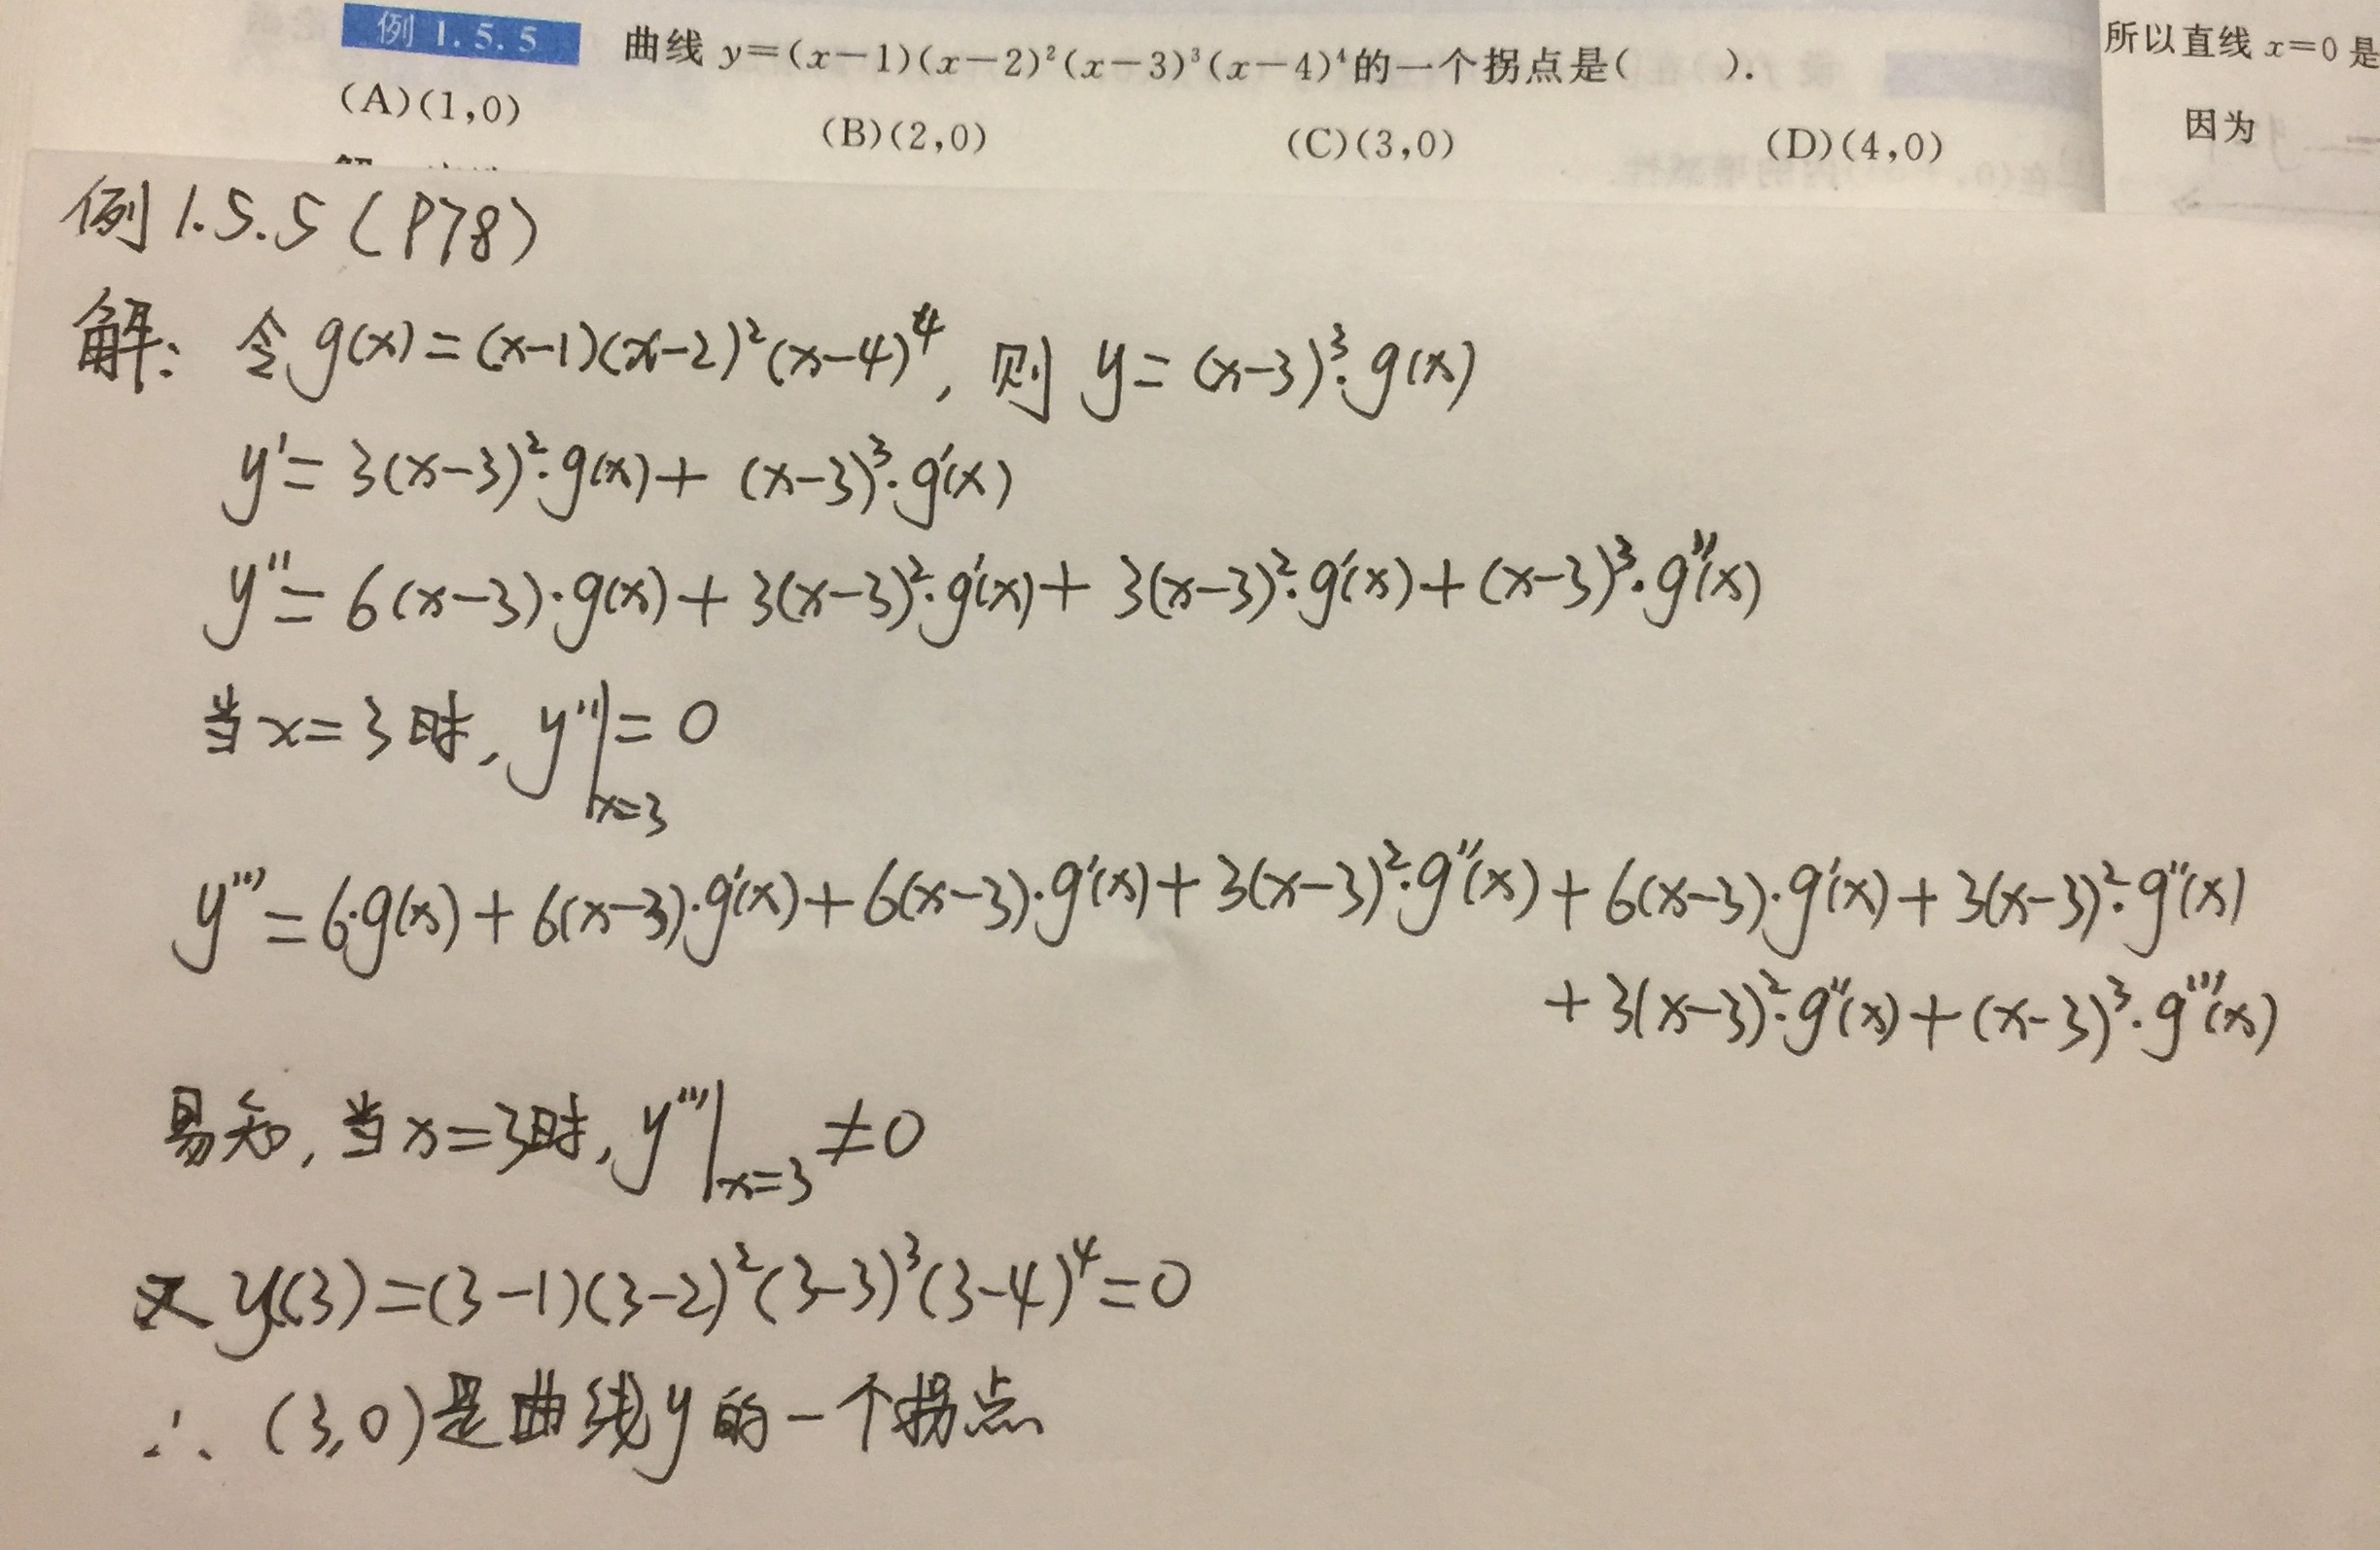 例 1.5.5 曲线 y=(x-1)(x-2)²(x-3)³(x-4)⁴的一个拐点是(  ).
(A)(1,0) (B)(2,0) (C)(3,0) (D)(4,0)
所以直线 x=0 是
因为
例1.5.5(P78)
解: 令g(x)=(x-1)(x-2)²(x-4)⁴, 则 y=(x-3)³·g(x)
y'=3(x-3)²·g(x)+(x-3)³·g'(x)
y''=6(x-3)·g(x)+3(x-3)²·g'(x)+3(x-3)²·g'(x)+(x-3)³·g''(x)
当x=3时, y''|x=3=0
y'''=6·g(x)+6(x-3)·g'(x)+6(x-3)·g'(x)+3(x-3)²·g''(x)+6(x-3)·g'(x)+3(x-3)²·g''(x)
+3(x-3)²·g''(x)+(x-3)³·g'''(x)
易知, 当x=3时, y'''|x=3≠0
又 y(3)=(3-1)(3-2)²(3-3)³(3-4)⁴=0
∴ (3,0)是曲线y的一个拐点